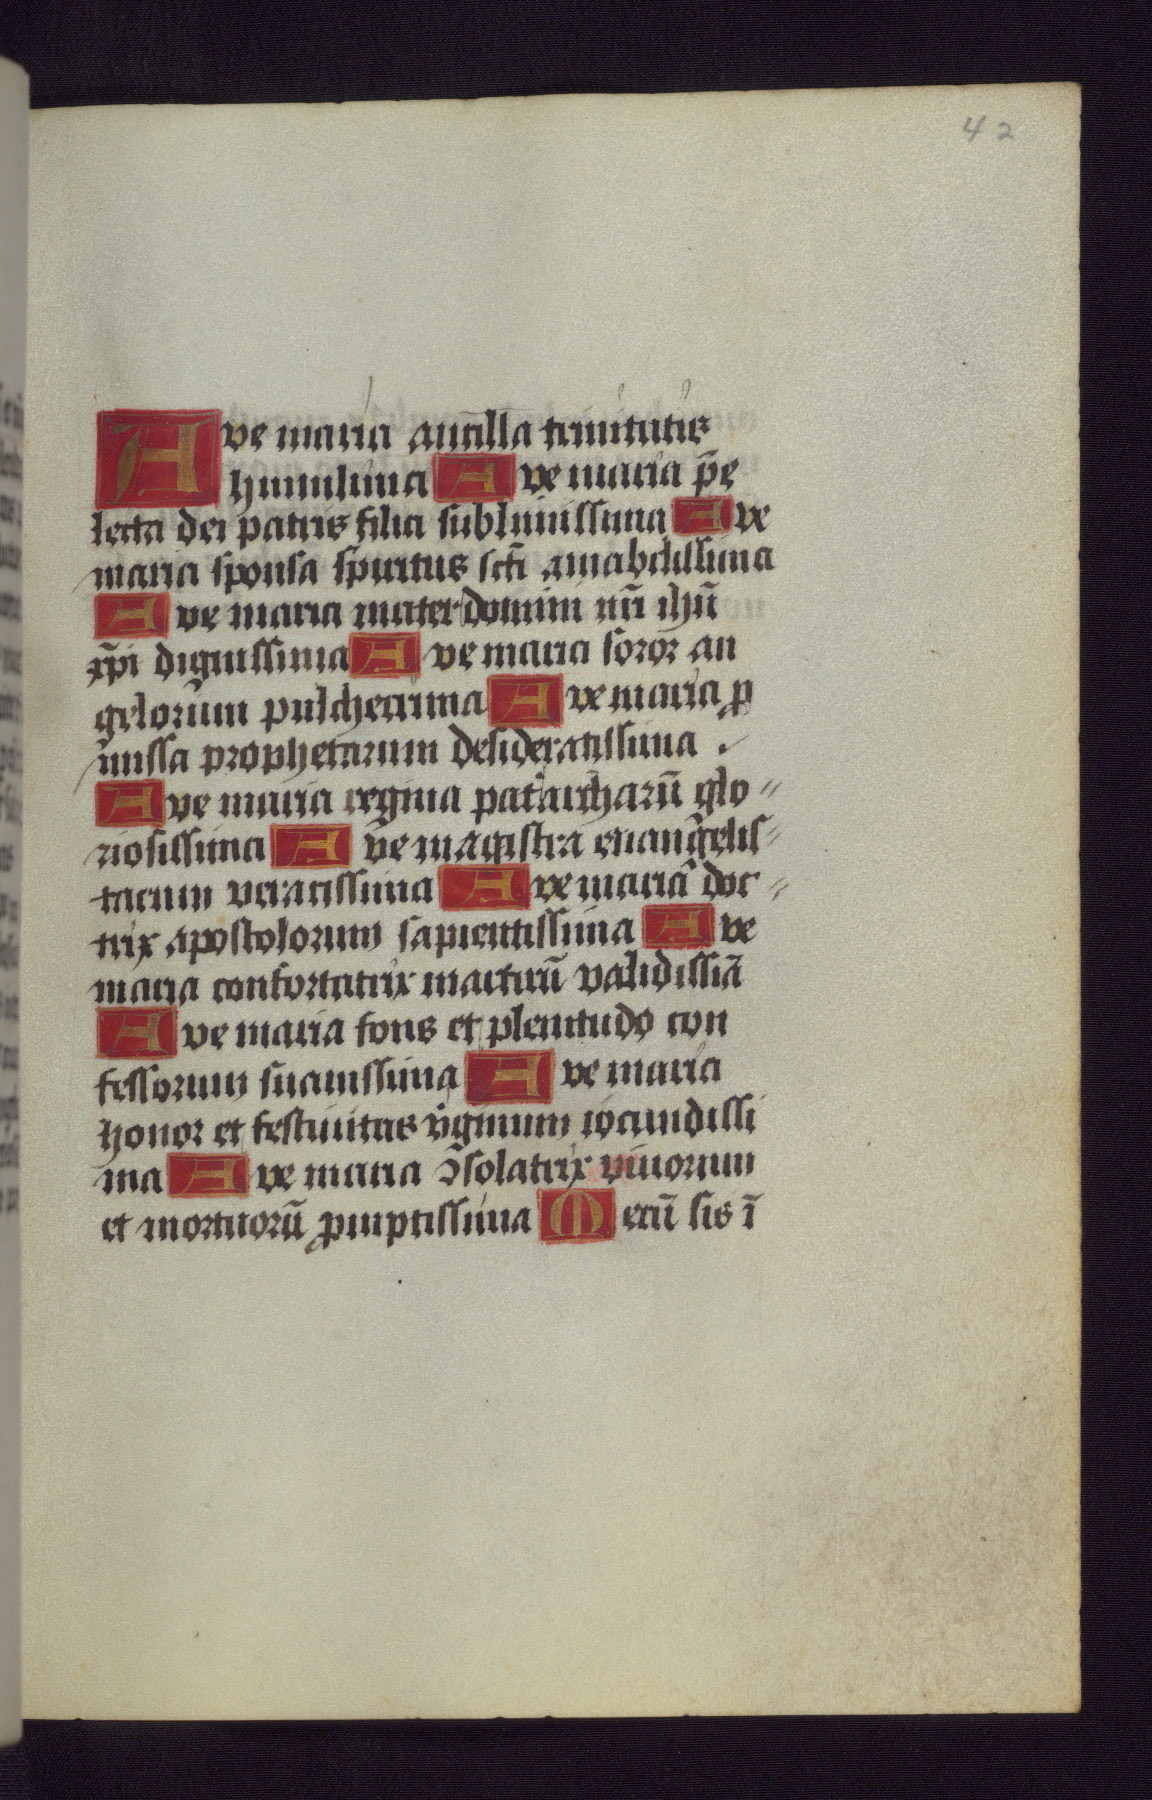 42
Ave maria ancilla trinitatis
humilima Ave maria p̄e
lecta dei patris filia sublimissima Ave
maria sponsa spiritus sctī amabilissima
Ave maria mater domini nr̄i ihū
xp̄i dignissima Ave maria soror an
gelorum pulcherrima Ave maria ꝓ
missa prophetarum desideratissima
Ave maria regina patriarcharū glo
riosissima Ave magistra euangelis
tarum veracissima Ave maria doc
trix apostolorum sapientissima Ave
maria confortatrix martirū validissiā
Ave maria fons et plenitudo con
fessorum suauissima Ave maria
honor et festiuitas v̄ginum iocundissi
ma Ave maria ↄ̄solatrix viuorum
et mortuorū ꝓmptissima Mecū sis ī